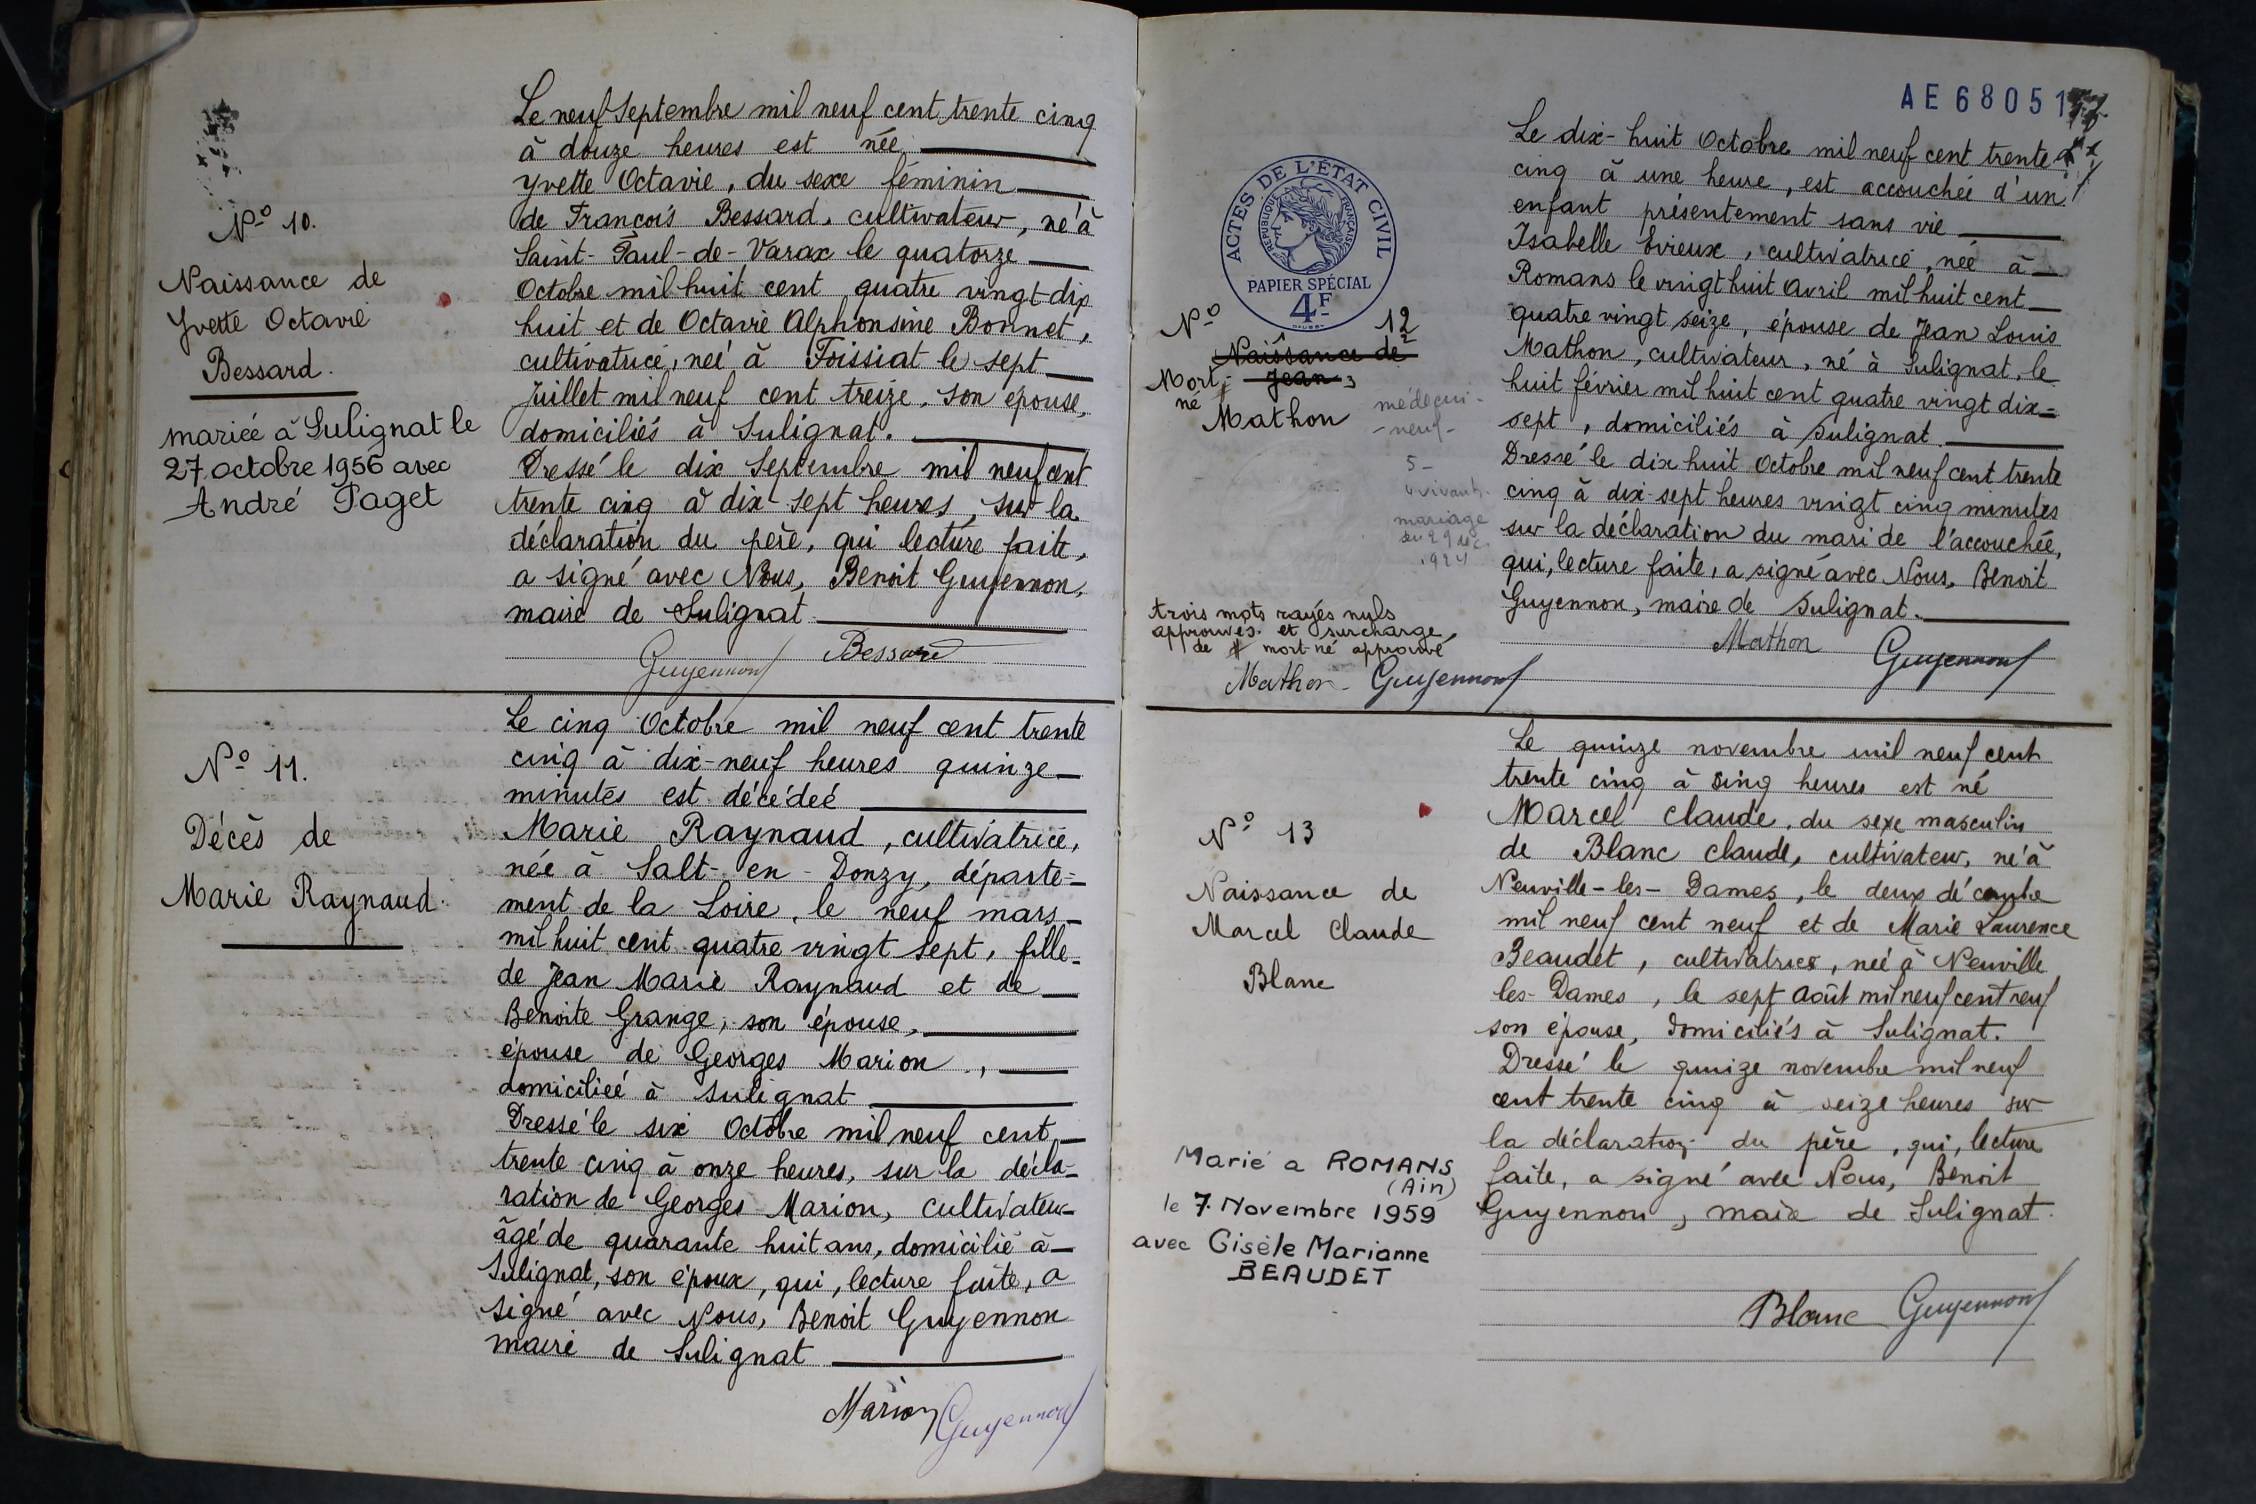 N° 10.
Naissance de
Yvette Octavie
Bessard.
mariée à Sulignat le
27 octobre 1956 avec
André Paget
Le neuf Septembre mil neuf cent trente cinq
à douze heures est née
Yvette Octavie, du sexe féminin
de François Bessard, cultivateur, né à
Saint-Paul-de-Varax le quatorze
Octobre mil huit cent quatre vingt-dix
huit et de Octavie Alphonsine Bonnet,
cultivatrice, née à Foissiat le sept
Juillet mil neuf cent treize, son épouse,
domiciliés à Sulignat.
Dressé le dix Septembre mil neuf cent
trente cinq à dix-sept heures, sur la
déclaration du père, qui lecture faite,
a signé avec Nous, Benoit Guyennon,
maire de Sulignat
Guyennon Bessard
N° 11.
Décès de
Marie Raynaud.
Le cinq Octobre mil neuf cent trente
cinq à dix-neuf heures quinze
minutes est décédée
Marie Raynaud, cultivatrice,
née à Salt-en-Donzy, départe=
ment de la Loire, le neuf mars
mil huit cent quatre vingt sept, fille
de Jean Marie Raynaud et de
Benoite Grange, son épouse,
épouse de Georges Marion,
domiciliée à Sulignat
Dressé le six Octobre mil neuf cent
trente cinq à onze heures, sur la décla-
ration de Georges Marion, cultivateur
âgé de quarante huit ans, domicilié à
Sulignat, son époux, qui, lecture faite, a
signé avec Nous, Benoit Guyennon
maire de Sulignat
Marion Guyennon
AE 68051
ACTES DE L'ÉTAT CIVIL
RÉPUBLIQUE FRANÇAISE
PAPIER SPÉCIAL
4F
N° 12
Naissance de
Mort- Jean
né
Mathon
médecin-
-neuf-
5-
vivants.
mariage
du 29 déc
1924
trois mots rayés nuls
approuvés. et surcharge
de mort-né approuvé
Mathon Guyennon
Le dix-huit Octobre mil neuf cent trente
cinq à une heure, est accouchée d'un
enfant présentement sans vie
Isabelle Evieux, cultivatrice, née à
Romans le vingt huit Avril mil huit cent
quatre vingt seize, épouse de Jean Louis
Mathon, cultivateur, né à Sulignat, le
huit février mil huit cent quatre vingt dix=
sept, domiciliés à Sulignat.
Dressé le dix huit Octobre mil neuf cent trente
cinq à dix-sept heures vingt cinq minutes
sur la déclaration du mari de l'accouchée,
qui, lecture faite, a signé avec Nous, Benoit
Guyennon, maire de Sulignat.
Mathon Guyennon
N° 13
Naissance de
Marcel Claude
Blanc
Marié a ROMANS
(Ain)
le 7. Novembre 1959
avec Gisèle Marianne
BEAUDET
Le quinze novembre mil neuf cent
trente cinq à cinq heures est né
Marcel Claude, du sexe masculin
de Blanc Claude, cultivateur, né à
Neuville-les-Dames, le deux décembre
mil neuf cent neuf et de Marie Laurence
Beaudet, cultivatrice, née à Neuville
les-Dames, le sept Août mil neuf cent neuf
son épouse, domiciliés à Sulignat.
Dressé le quinze novembre mil neuf
cent trente cinq à seize heures sur
la déclaration du père, qui, lecture
faite, a signé avec Nous, Benoit
Guyennon, maire de Sulignat.
Blanc Guyennon